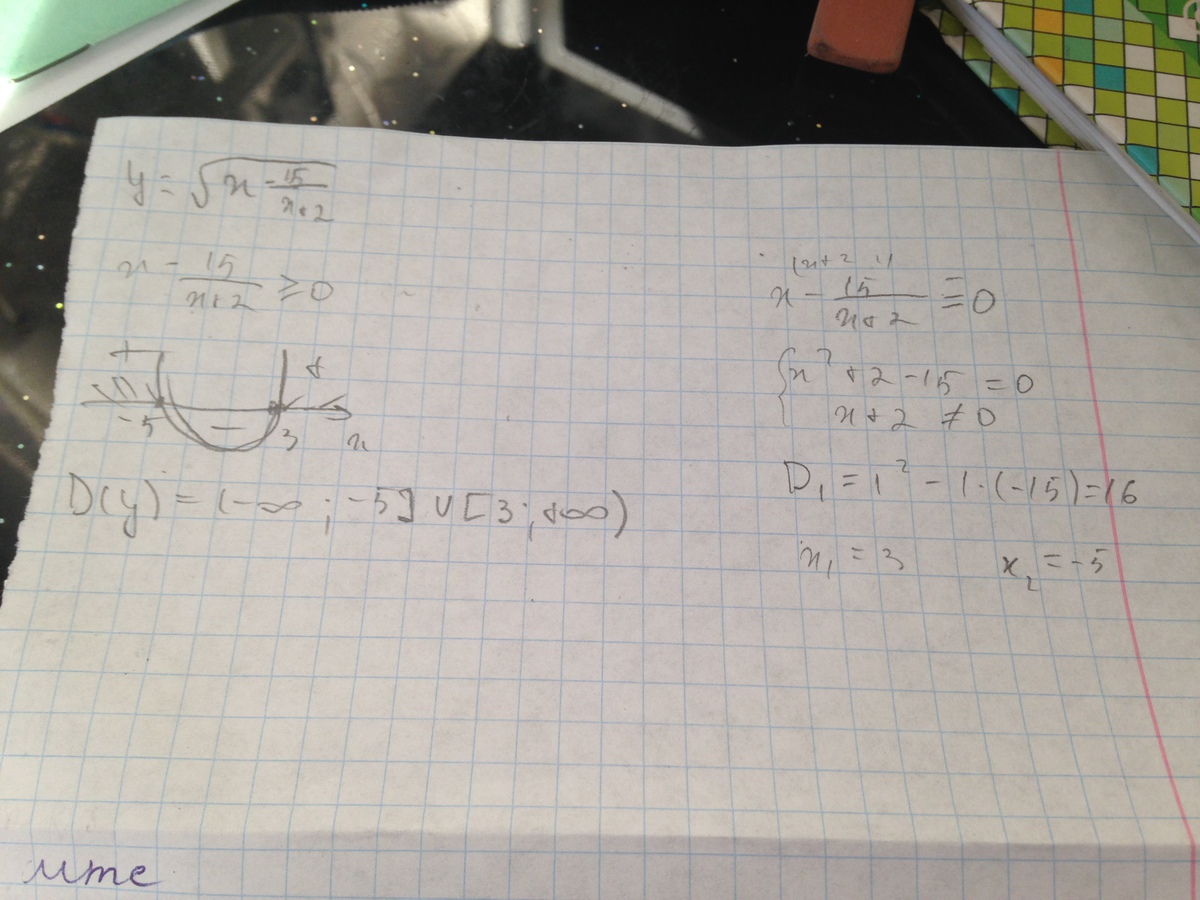 y = √(x - 15/(x+2))
x - 15/(x+2) ≥ 0
+ +
-5 − 3 x
D(y) = (-∞; -5] ∪ [3; +∞)
(x+2 1)
x - 15/(x+2) = 0
{ x² + 2 - 15 = 0
x + 2 ≠ 0
D₁ = 1² - 1·(-15) = 16
x₁ = 3 x₂ = -5
ите